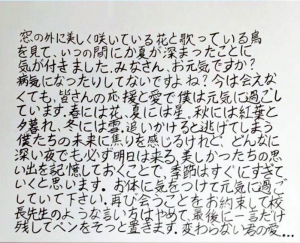 窓の外に美しく咲いている花と歌っている鳥
を見て、いつの間にか夏が深まったことに
気が付きました。みなさん、お元気ですか?
病気になったりしてないですよね?今は会えな
くても、皆さんの応援と愛で僕は元気に過ごし
ています。春には花、夏には星、秋には紅葉と
夕暮れ、冬には雪。追いかけると逃げてしまう
僕たちの未来に焦りを感じるけれど、どんなに
深い夜でも必ず明日は来る。美しかったらの思
い出を記憶しておくことで、季節はすぐにすぎて
いくと思います。お体に気をつけて元気に過ご
していて下さい。再び会うことをお約束して校
長先生のような言い方はやめて、最後に一言だけ
残してペンをそっと置きます。変わらない君の愛